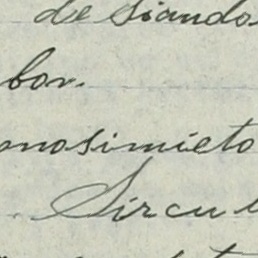 de siando
bor.
onosimieto
Sircul